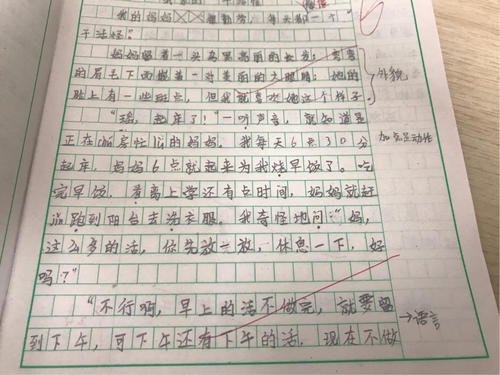 我的妈妈 很勤劳，每天都
干活。
妈妈留着一头乌黑亮丽的长发，弯弯
的眉毛下面 着一对美丽的大眼睛；她的
脸上有一些斑点，但我就喜欢她这个样子。
外貌
“瑶，起床了！”一听声音，就知道是
正在chú房忙lù的妈妈，我每天6点30分
加完是动作
起床，妈妈6点就起来为我烧早饭了。吃
完早饭，着离上学还有点时间，妈妈就赶
紧跑到阳台去洗衣服。我奇怪地问：“妈，
这么多的活，你先放一放，休息一下，好
吗？”
“不行啊，早上的活不做完，就要留
→语言
到下午，可下午还有下午的活，现在不做